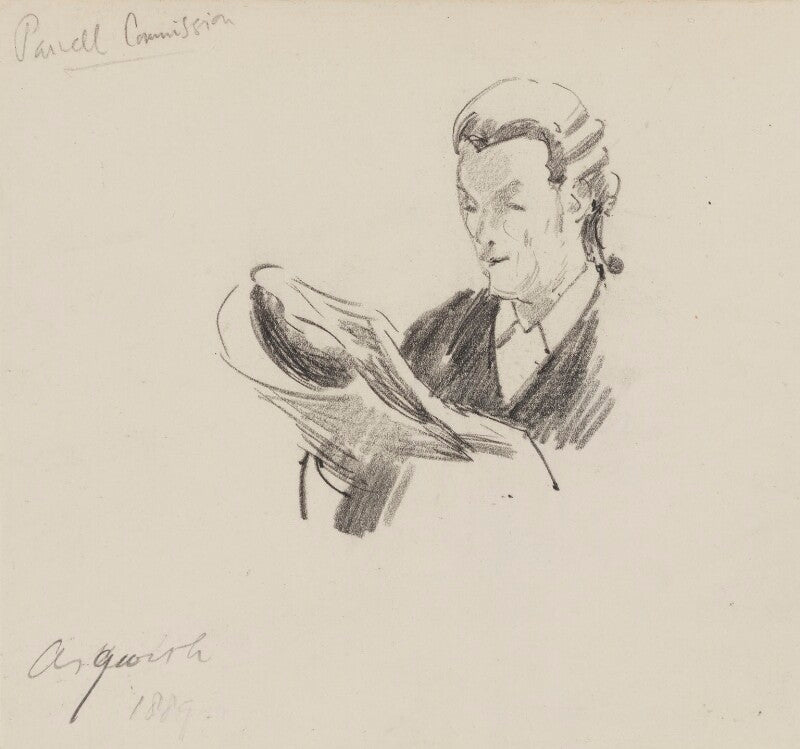 Parnell Commission
Asquith
1889